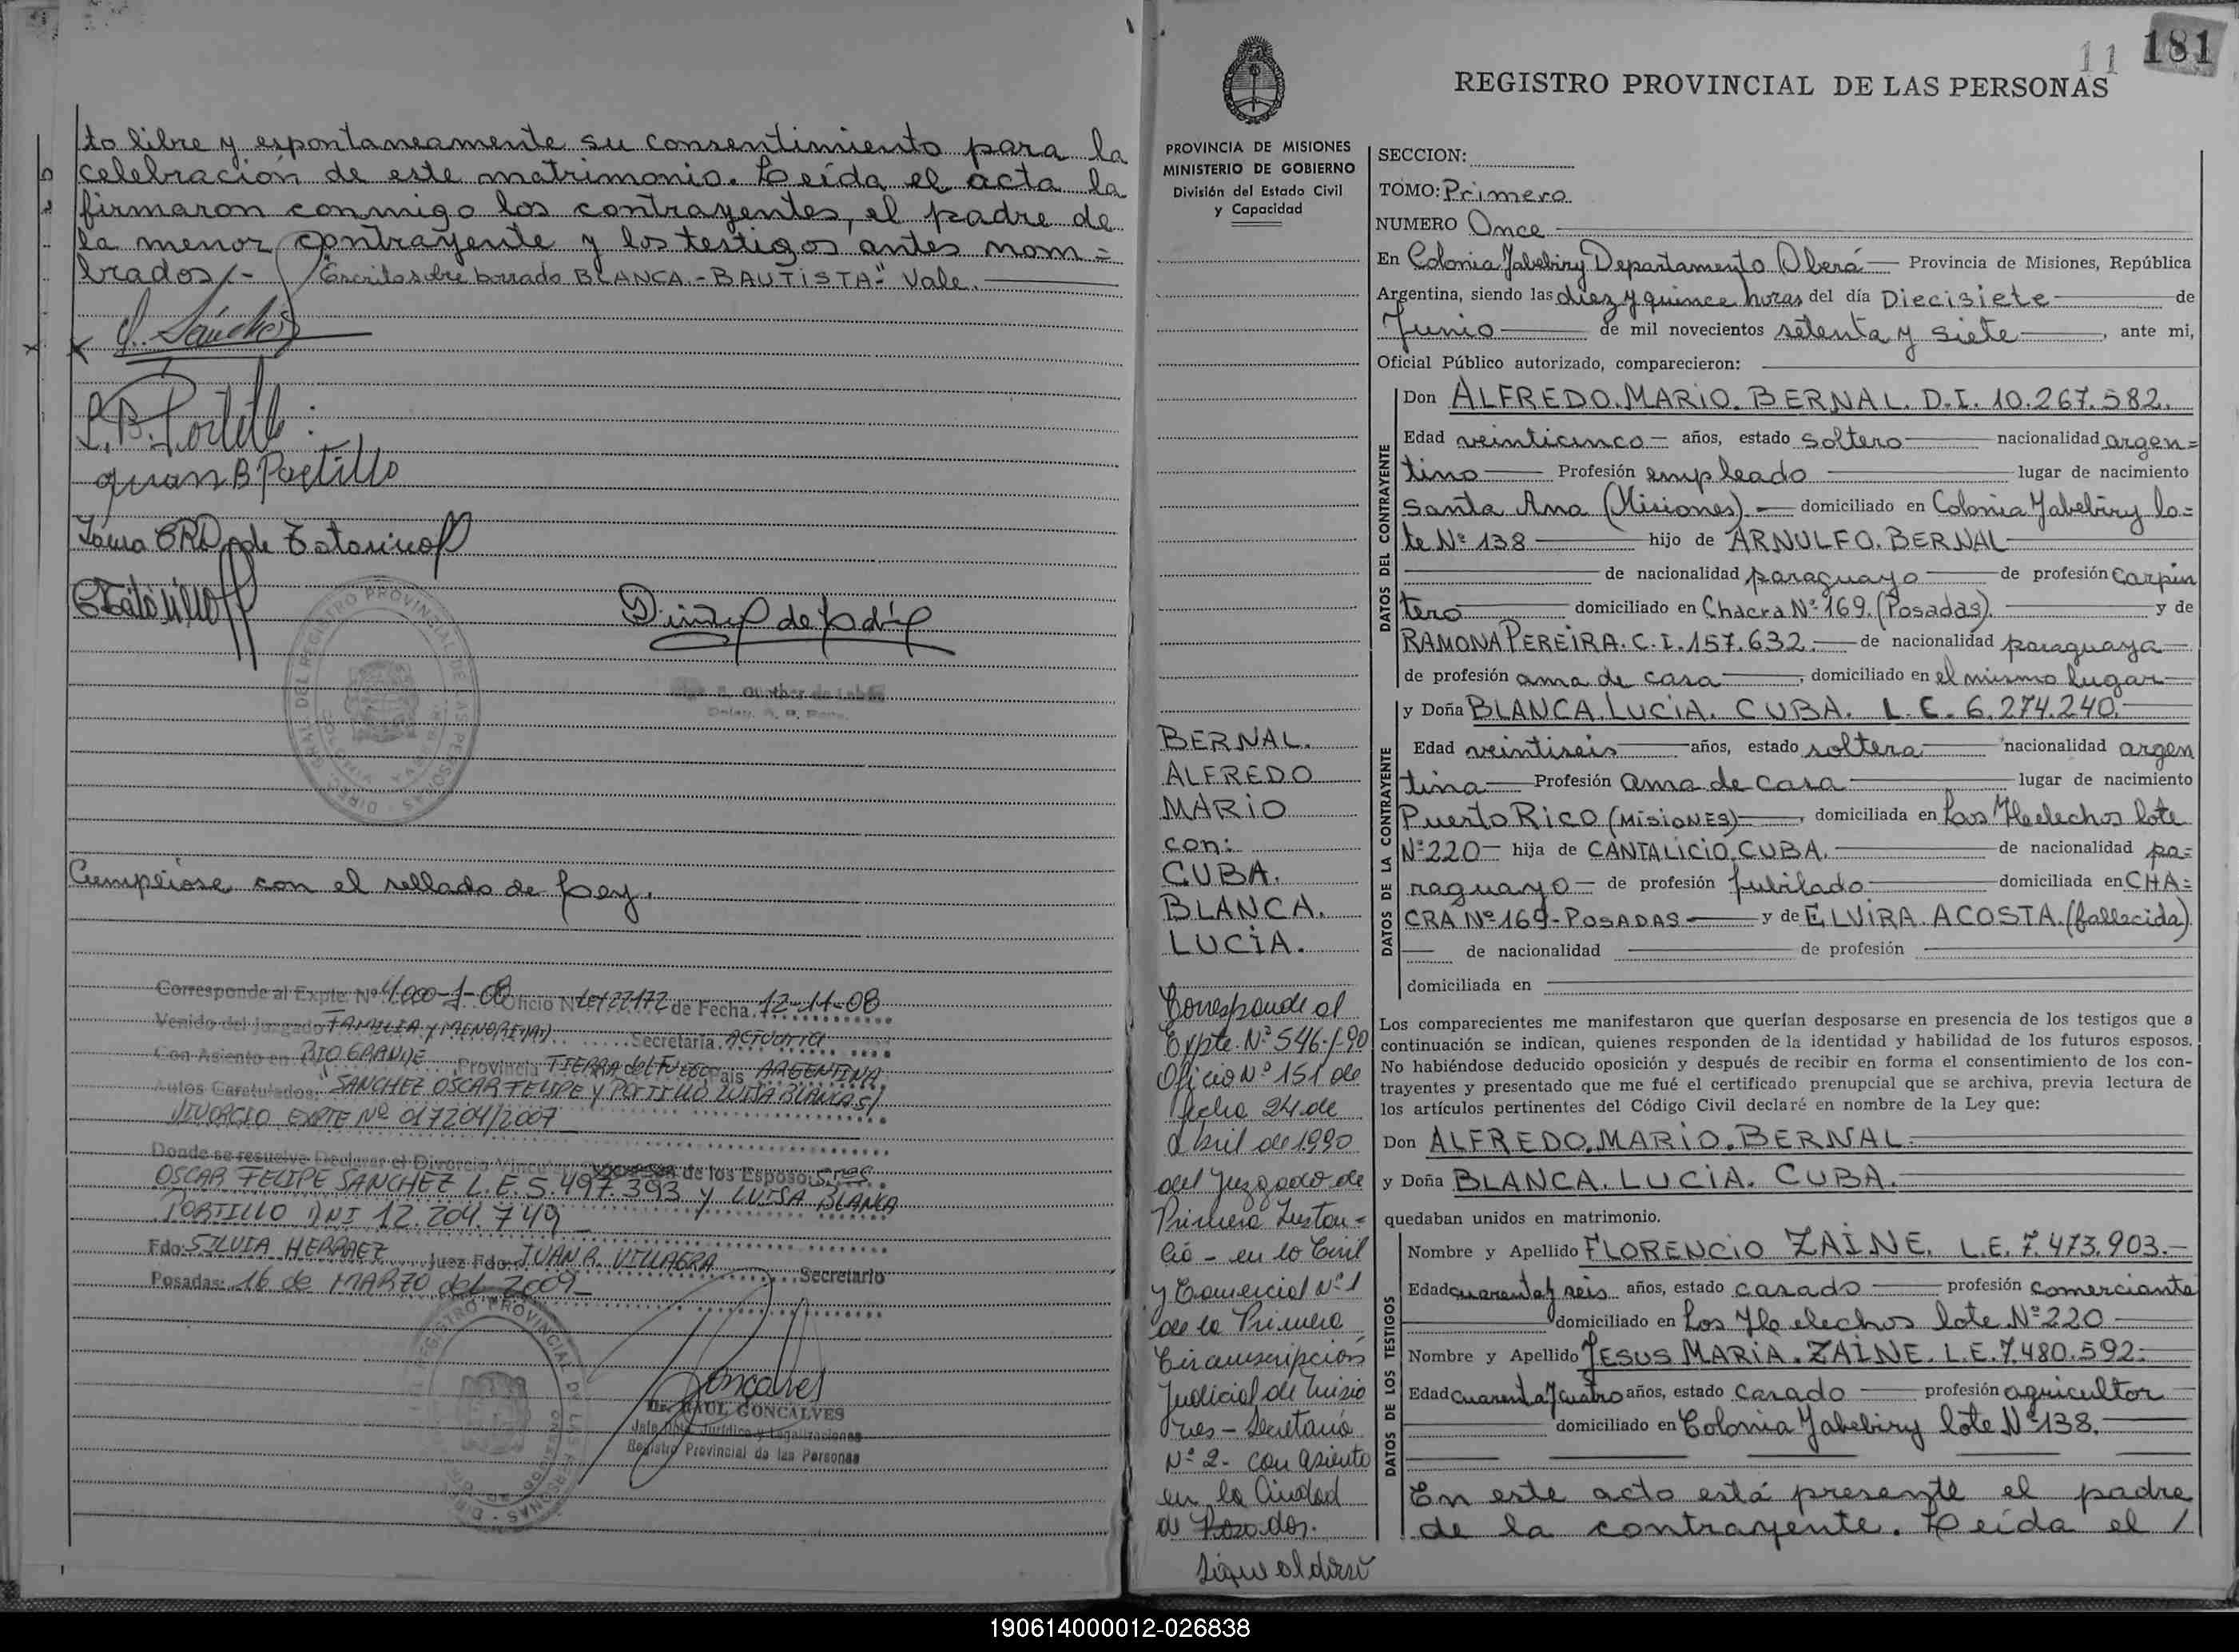 to libre y espontaneamente su consentimiento para la
celebración de este matrimonio. Leída el acta la
firmaron conmigo los contrayentes, el padre de
la menor contrayente y los testigos antes nom=
brados/- "Escrito sobre borrado BLANCA.-BAUTISTA" Vale.
Sánchez
L.B. Portillo
Juan B Portillo
de Totorinoff
Cumplióse con el sellado de Ley.
Corresponde al Expte. Nº 4000-1-08 Oficio Nº de Fecha 12-11-08
Venido del Juzgado FAMILIA y MENORE Secretaria ACTUARIA
Con Asiento en RIO GRANDE Provincia TIERRA del FUEGO Pais ARGENTINA.
Autos Caratulados: SANCHEZ OSCAR FELIPE Y PORTILLO LUISA BLANCA S/
DIVORCIO EXPTE Nº 017204/2007
Donde se resuelve Declarar el Divorcio Vincular de los Esposos: Sres.
OSCAR FELIPE SANCHEZ L.E. 5.497.393 Y LUISA BLANCA
PORTILLO DNI 12.204.749
Fdo: SILVIA HERRAEZ Juez Fdo: JUAN R. VILLAGRA Secretario
Posadas: 16 de MARZO del 2009
Goncalves
Dr. RAUL GONCALVES
Jefe Dpto. Jurídico y Legalizaciones
Registro Provincial de las Personas
11 181
REGISTRO PROVINCIAL DE LAS PERSONAS
PROVINCIA DE MISIONES
MINISTERIO DE GOBIERNO
División del Estado Civil
y Capacidad
BERNAL.
ALFREDO
MARIO
con:
CUBA.
BLANCA.
LUCIA.
Corresponde al
Expte. Nº 546-/-90
Oficio Nº 151 de
fecha 24 de
abril de 1990
del Juzgado de
Primera Instan=
cia - en lo Civil
y Comercial Nº 1
de la Primera
Circunscripción
Judicial de Misio
nes - Secretaría
Nº 2 - con asiento
en la Ciudad
de Posadas.
Sigue al dorso
SECCION:
TOMO: Primero
NUMERO Once
En Colonia Yabebiry Departamento Oberá Provincia de Misiones, República
Argentina, siendo las diez y quince horas del día Diecisiete de
Junio de mil novecientos setenta y siete, ante mi,
Oficial Público autorizado, comparecieron:
DATOS DEL CONTRAYENTE
Don ALFREDO. MARIO. BERNAL. D.I. 10.267.582.
Edad veinticinco años, estado soltero nacionalidad argen=
tino Profesión empleado lugar de nacimiento
Santa Ana (Misiones) domiciliado en Colonia Yabebiry lo=
te Nº 138 hijo de ARNULFO. BERNAL
de nacionalidad paraguayo de profesión carpin
tero domiciliado en Chacra Nº 169. (Posadas). y de
RAMONA PEREIRA. C.I. 157.632. de nacionalidad paraguaya
de profesión ama de casa, domiciliado en el mismo lugar
DATOS DE LA CONTRAYENTE
y Doña BLANCA. LUCIA. CUBA. L.C. 6.274.240.
Edad veintiseis años, estado soltera nacionalidad argen
tina Profesión ama de casa lugar de nacimiento
Puerto Rico (MISIONES), domiciliada en Los Helechos lote
Nº 220 hija de CANTALICIO. CUBA. de nacionalidad pa=
raguayo de profesión jubilado domiciliada en CHA=
CRA Nº 169-POSADAS y de ELVIRA. ACOSTA. (fallecida)
de nacionalidad de profesión
domiciliada en
Los comparecientes me manifestaron que querían desposarse en presencia de los testigos que a
continuación se indican, quienes responden de la identidad y habilidad de los futuros esposos.
No habiéndose deducido oposición y después de recibir en forma el consentimiento de los con-
trayentes y presentado que me fué el certificado prenupcial que se archiva, previa lectura de
los artículos pertinentes del Código Civil declaré en nombre de la Ley que:
Don ALFREDO. MARIO. BERNAL.
y Doña BLANCA. LUCIA. CUBA.
quedaban unidos en matrimonio.
DATOS DE LOS TESTIGOS
Nombre y Apellido FLORENCIO ZAINE. L.E. 7.473.903.-
Edad cuarenta y seis años, estado casado profesión comerciante
domiciliado en Los Helechos lote Nº 220
Nombre y Apellido JESUS MARIA. ZAINE. L.E. 7.480.592.
Edad cuarenta y cuatro años, estado casado profesión agricultor
domiciliado en Colonia Yabebiry lote Nº 138.
En este acto está presente el padre
de la contrayente. Leída el /
190614000012-026838